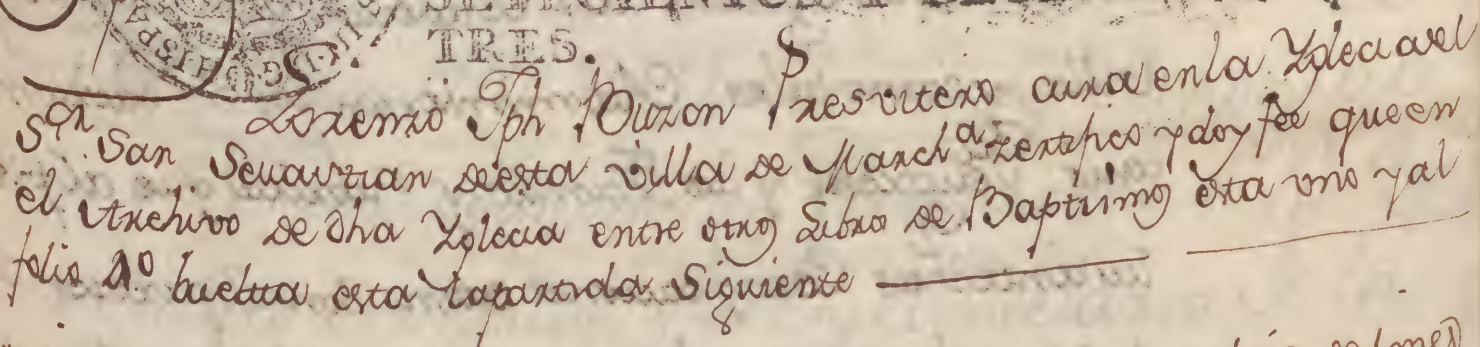 TRES.
Lorenzo Jph Buzon Presvitero cura en la Yglecia del
Sor. San Sevastian de esta Villa de Marcha. zertifico y doy fee que en
el Archivo de dha Yglecia entre otros Libro de Baptismos esta uno y al
folio buelta esta la partida Siguiente